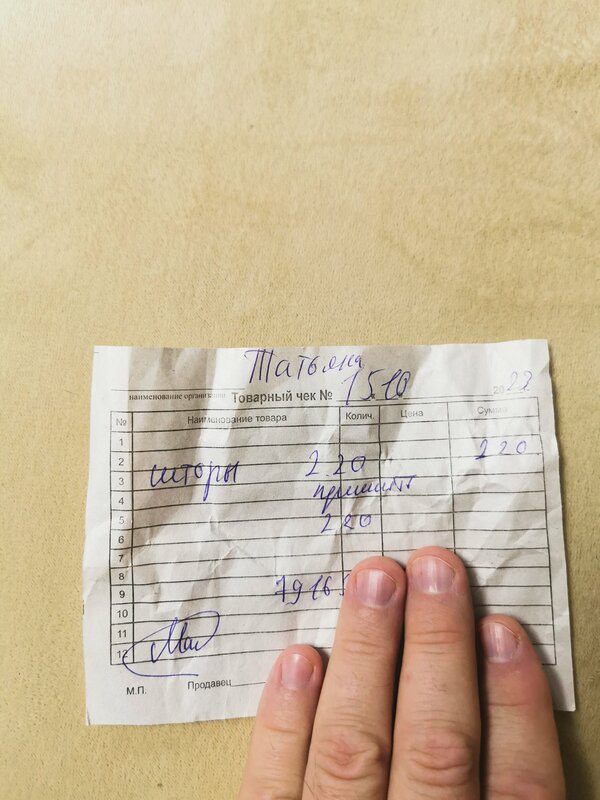 Татьяна
наименование организации Товарный чек № 1510 2022
№ Наименование товара Колич. Цена Сумма
1
2 220
3 шторы 220
4
5 220
6
7
8
9 7916
10
11
12
М.П. Продавец